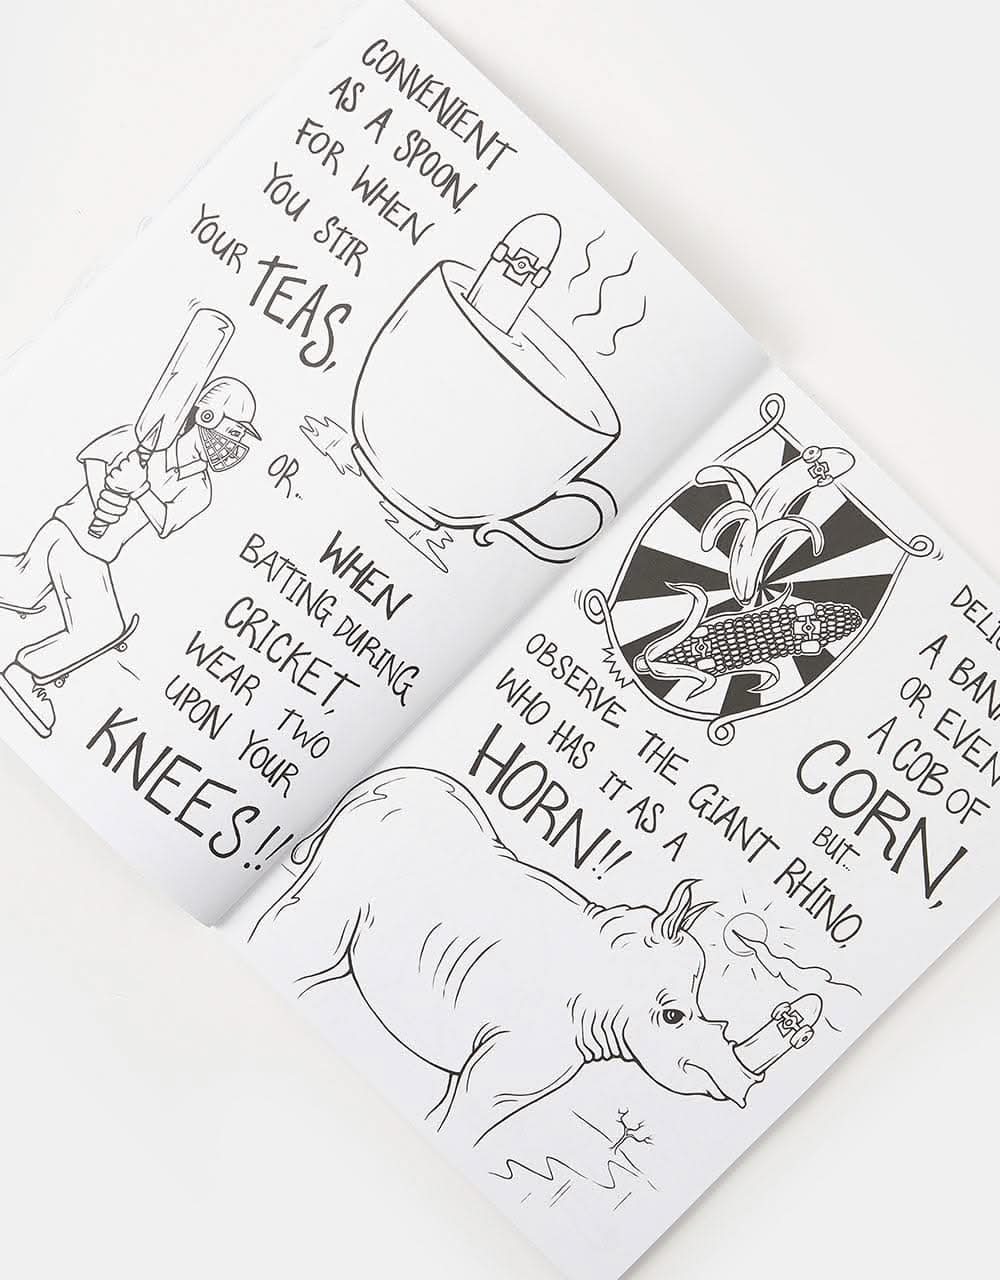 CONVENIENT
AS A SPOON,
FOR WHEN
YOU STIR
YOUR TEAS,
OR..
WHEN
BATTING DURING
CRICKET,
WEAR TWO
UPON YOUR
KNEES!!
A
OR EVEN
A COB OF
CORN,
BUT...
OBSERVE THE GIANT RHINO,
WHO HAS IT AS A
HORN!!